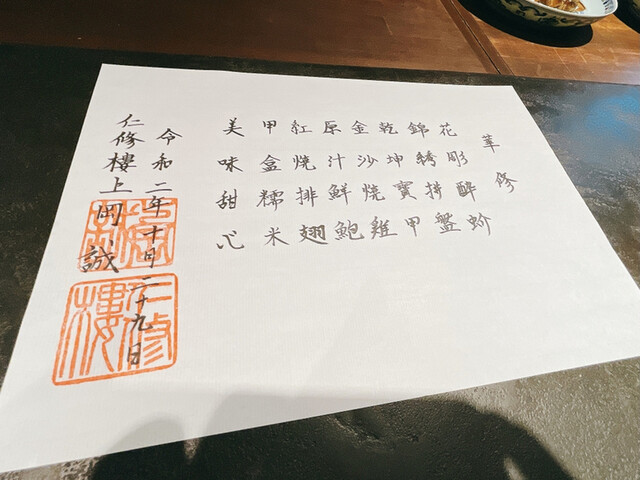 修
花彫醉蚧
錦繡拼盤
乾坤寶甲
金沙焼雞
原汁鮮鮑
紅焼排翅
甲盒糯米
美味甜心
令和二年十月二十九日
仁修樓上岡誠
仁修樓